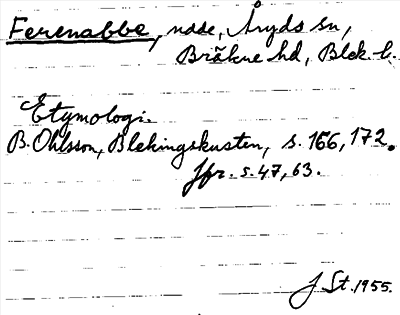 Ferenabbe, udde, Åryds sn,
Bräkne hd, Blek. l.
Etymologi.
B. Ohlsson, Blekingskusten, s. 166, 172.
Jfr. s. 47, 63.
J St. 1955.